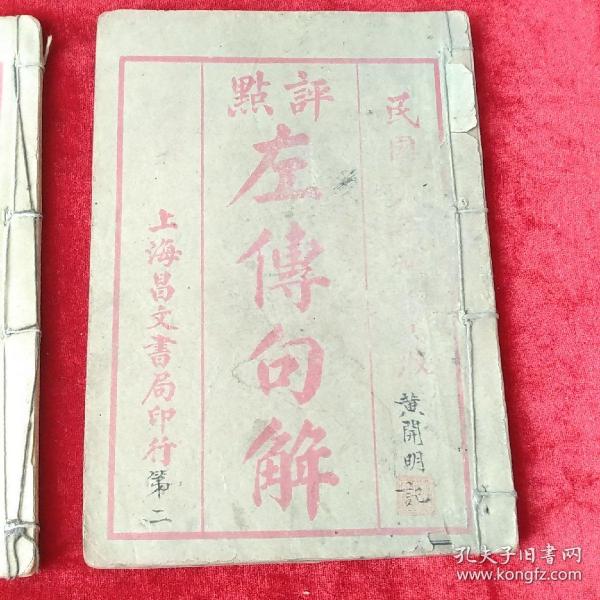 民國
黃開明記
評點
左傳句解
上海昌文書局印行
第二
孔夫子旧书网
www.kongfz.com